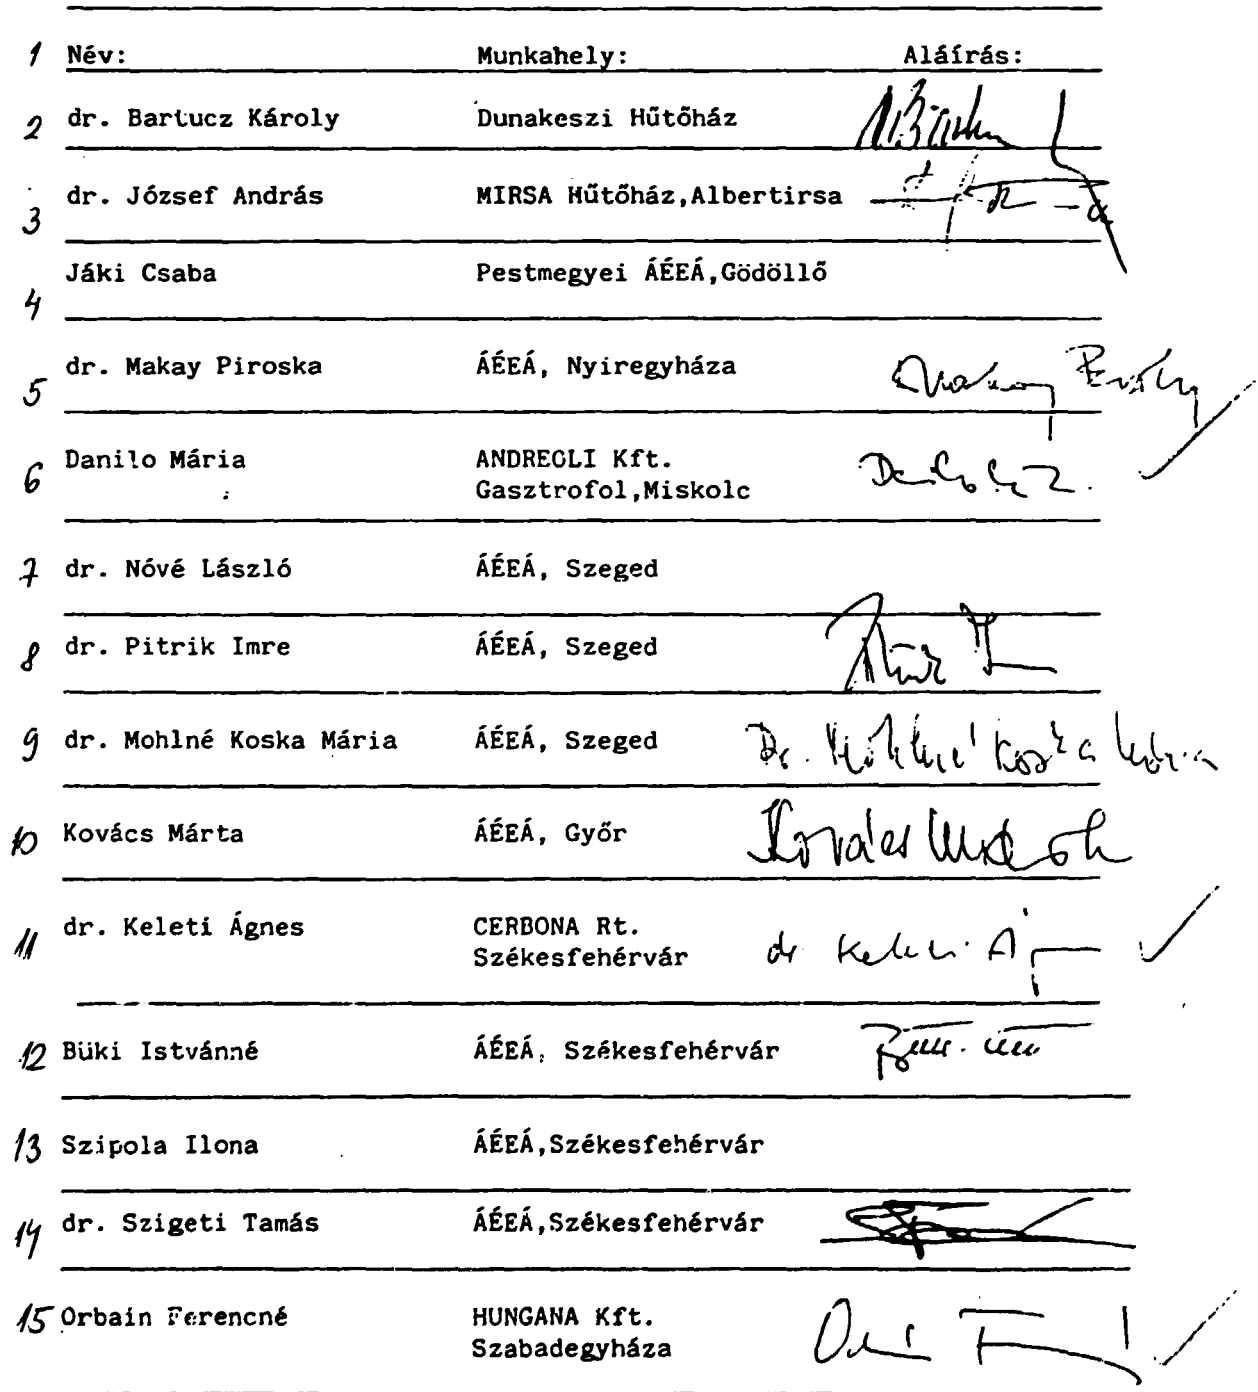 1 Név: Munkahely: Aláírás:
2 dr. Bartucz Károly Dunakeszi Hűtőház
3 dr. József András MIRSA Hűtőház,Albertirsa
4 Jáki Csaba Pestmegyei ÁÉEÁ,Gödöllő
5 dr. Makay Piroska ÁÉEÁ, Nyiregyháza
6 Danilo Mária ANDREOLI Kft.
Gasztrofol,Miskolc
7 dr. Nóvé László ÁÉEÁ, Szeged
8 dr. Pitrik Imre ÁÉEÁ, Szeged
9 dr. Mohlné Koska Mária ÁÉEÁ, Szeged Dr. Mohlné Koska Mária
10 Kovács Márta ÁÉEÁ, Győr Kovács Márta
11 dr. Keleti Ágnes CERBONA Rt. dr Keleti Á
Székesfehérvár
12 Büki Istvánné ÁÉEÁ, Székesfehérvár
13 Szipola Ilona ÁÉEÁ,Székesfehérvár
14 dr. Szigeti Tamás ÁÉEÁ,Székesfehérvár
15 Orbain Ferencné HUNGANA Kft.
Szabadegyháza